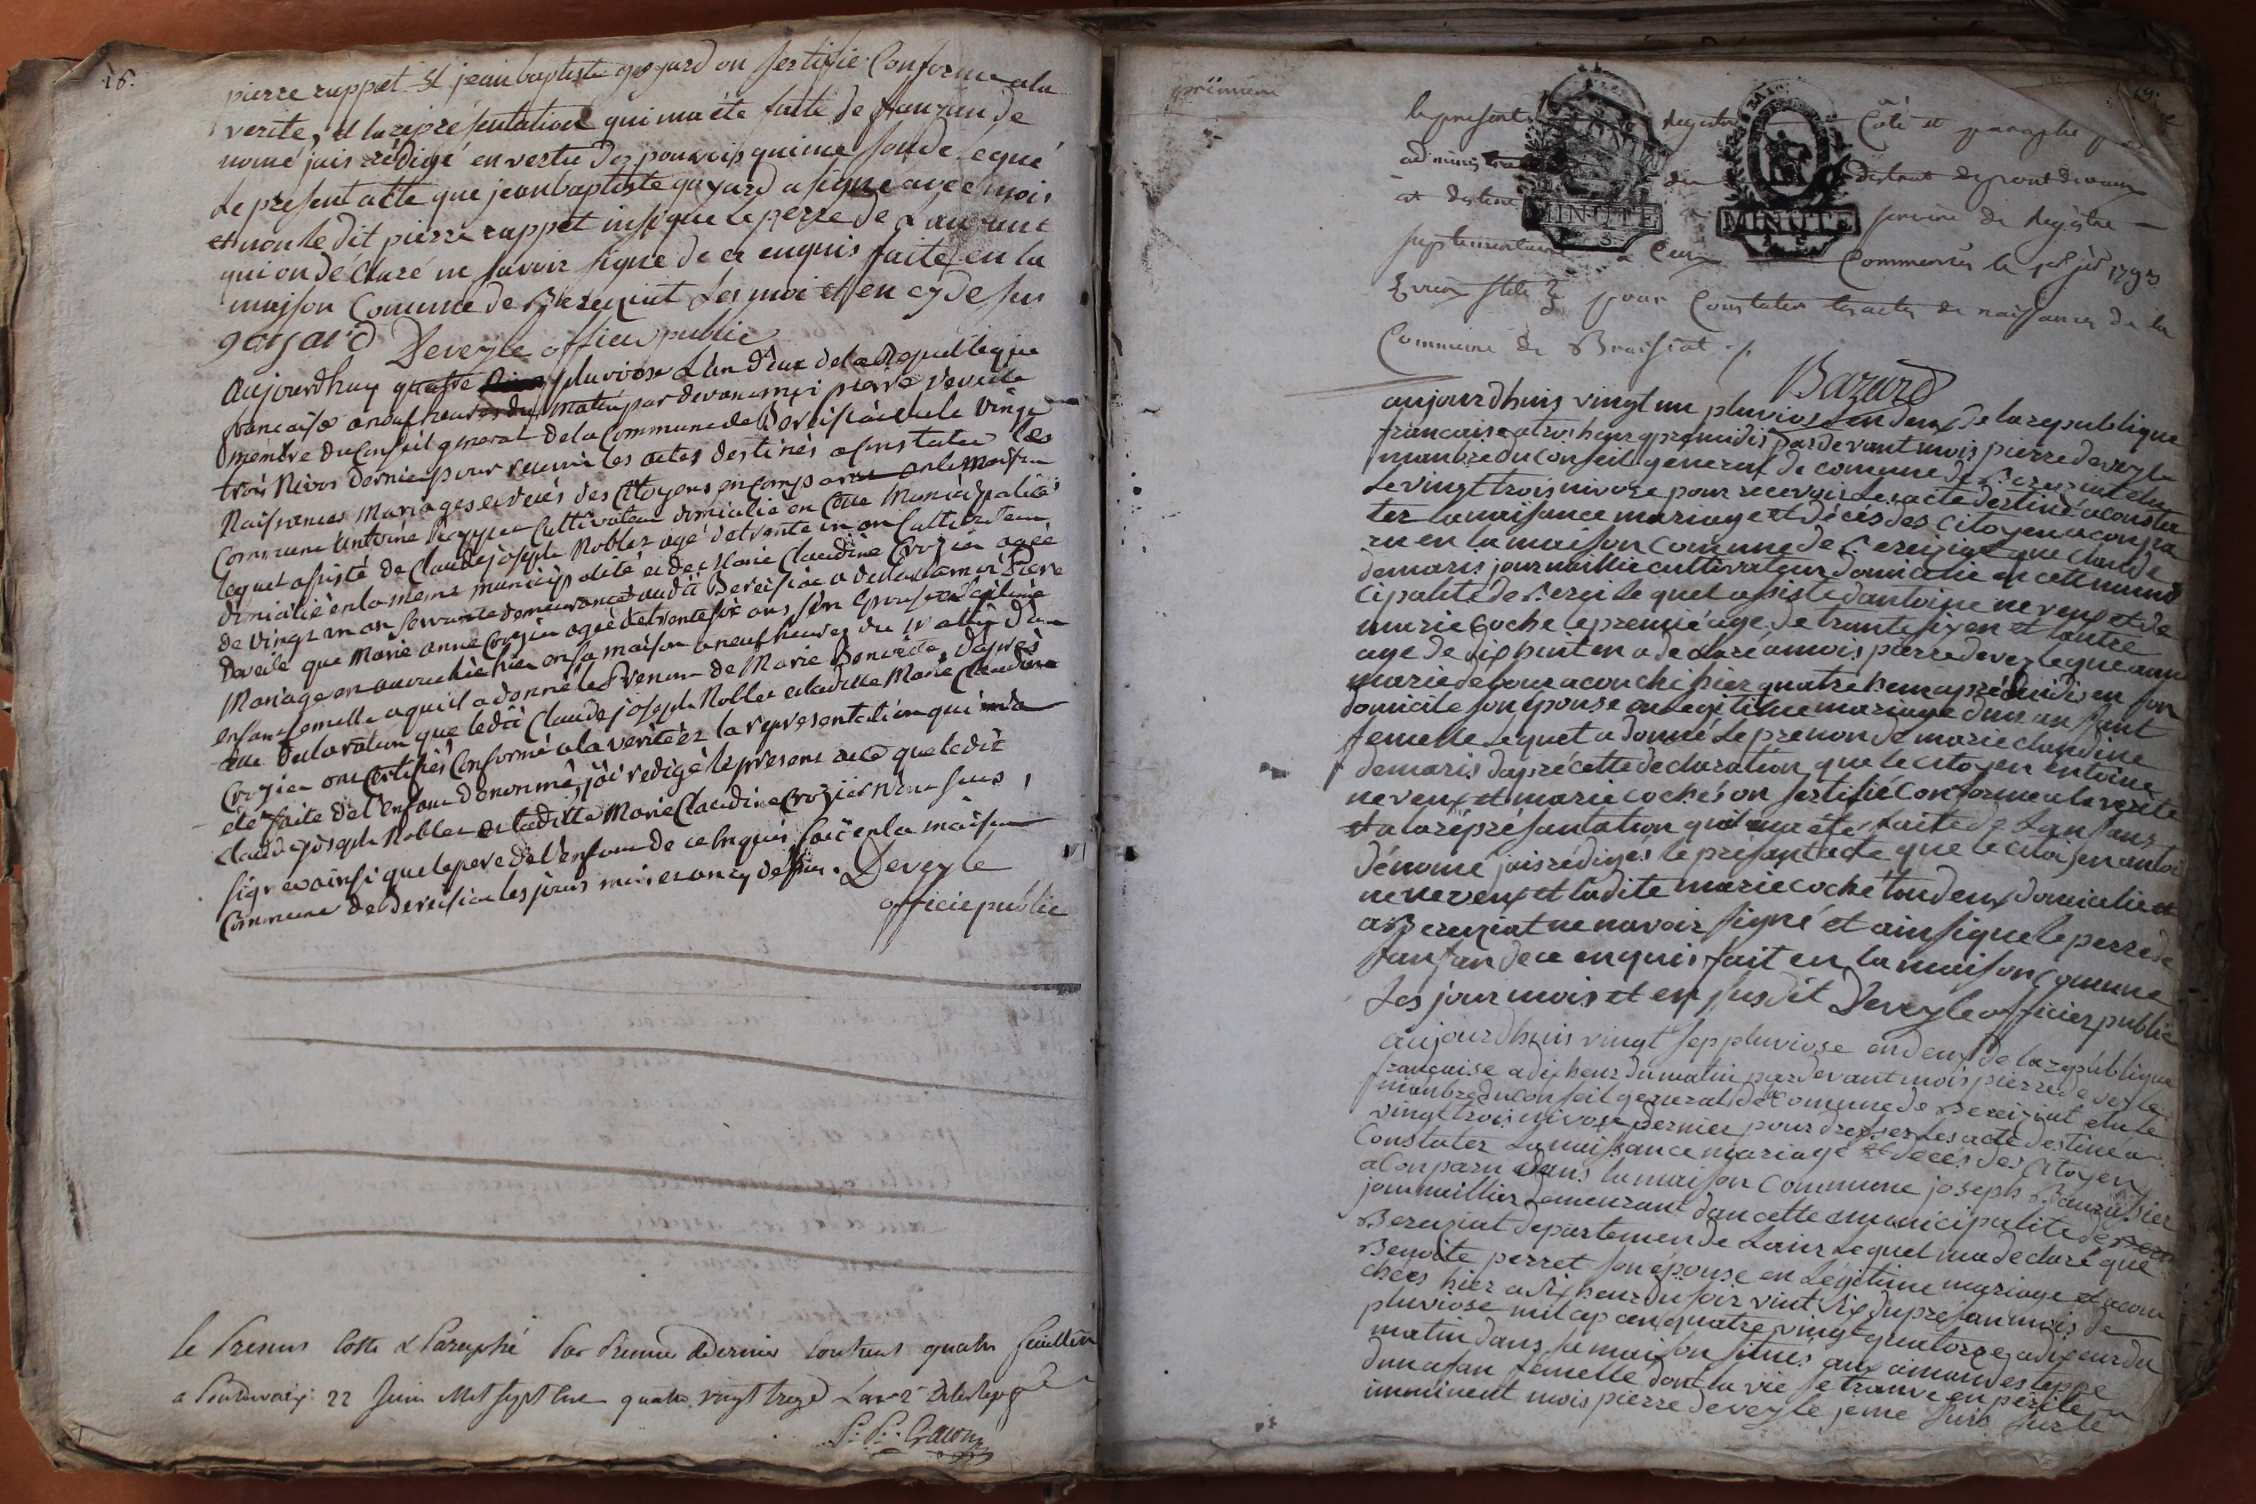 16.
pierre ruppet et jean baptiste guyard on sertifie Conforme a la
verite, et la représentation qui ma été faite de
nomé jais rédigé en vertu des pouvoirs qui me son de
Le présent acte que jean baptiste guyard a signe avec mois
et non le dit pierre ruppet insi que le perre de
qui on déclaré ne savoir signe de ce enquis faite en la
maison Comune de Bereiziat Les moi et en cy desus
guyard Deveyle officier public
Aujourdhuy quatre pluviose L'an deux de la Republique
francaise a neuf heures du matin par devant moi pierre Deveile
membre du Conseil general de la Commune de Bereisiat elu le vingt
trois Nivos dernier pour recevoir les actes destinés a Constater les
Naissances Mariages et deces des Citoyens en Comparu en la Maison
Commune Antoine Cultivateur domicilié en Cette Municipalité
lequel assisté de Claude joseph Noblet agé de trente un an Cultivateur
domicilié en la meme municipalité et de Marie Claudine Crozier agée
de vingt un an servante demeurante audit Bereisiat a declaré a moi Pierre
Deveile que Marie anne Crozier agée de trente six ans son Epouse en legitime
Mariage en accouchée hier en sa maison a neuf heures du matin d'un
enfant femelle a qui il a donné le Prenom de Marie Benoite, d'après
cette declaration que ledit Claude joseph Noblet et ladite Marie Claudine
Crozier ont Certifiés Conforme a la verité et la representation qui m'a
été faite de l'enfant dénommé, j'ai redigé le present acte que ledit
Claude joseph Noblet et ladite Marie Claudine Crozier n'ont sus
signer ainsi que le pere de l'enfant de ce enquis fait en la maison
Commune de Bereisiat les jours mois et an cy dessus. Deveyle
officie public
le Present Cotte & Paraphé Par Premier & Dernier Contenant quatre feuillets
a Pontdevaux 22 Juin Mil sept cent quatre vingt treze L'an 2e de la Repq
premiere
19.
le present Registre Coté et paraphé
administrateur du district de pont de vaux
et destiné a servire de Registre
suplementaire a Celuy Commencés le 1er jer 1793
vieux stile pour Constater les actes de naissances de la
Commune de Breissiat ./.
MINUTE
MINUTE
Bazard
aujourdhuis vingt un pluviose l'an deux de la republique
francaise a trois heur apré midis pardevant mois pierre deveyle
manbre du conseil general de comune de Bereziat elu
Le vingt trois nivose pour recevoir les acte destiné a consta
ter la naisance mariage et décés des citoyen a conpa
ru en la maison comune de Bereiziat que Claude
demaris journallie cultivateur domicilie en cette muni
cipalité de Berezi le quel assisté d'antoine neveux et de
marie coche le premie age de trante six en et lautre
age de dix huit en a declaré a mois pierre deveyle que anne
marie a couché hier quatre heur apré midis en son
domicile son épouse en legitime mariage dun anfant
femelle Lequel a donné Le prenon de marie claudine
demaris dapré cette declaration que le citoyen entoine
neveux et marie coche on sertifié conforme a la verite
et a la représantation qui ma été faite de Lanfant
dénomé jais rédigés le présant acte que le citoyen antoi
ne neveux et ladite marie coché tou deux domicilie
a Bereziat ne navoir signé et ainsi que le perre de
lanfan de ce enquis fait en la maison comune
Les jour mois et en susdit Deveyle officier public
aujourdhuis vingt sep pluviose en deux de la republique
francaise a dix heur du matin pardevant mois pierre deveyle
manbre du conseil general de la comune de Bereiziat elu le
vingt trois nivose dernier pour dresser les acte destiné a
Constater La naissance mariage et deces des Citoyen
a Conparu dans la maison Commune joseph
journallier demeurant dan cette municipalite de
Bereziat departemen de Lain Lequel ma declaré que
Benoite perret son épouse en légitime mariage et acou
chées hier a six heur du soir vint six du présan mois de
pluviose mil cep cen quatre vingt quatorze a dix eur du
matin dans sa maison situés
dun afan femelle dont la vie se trouve en perile
imminent mois pierre deveyle jeme suis sur le